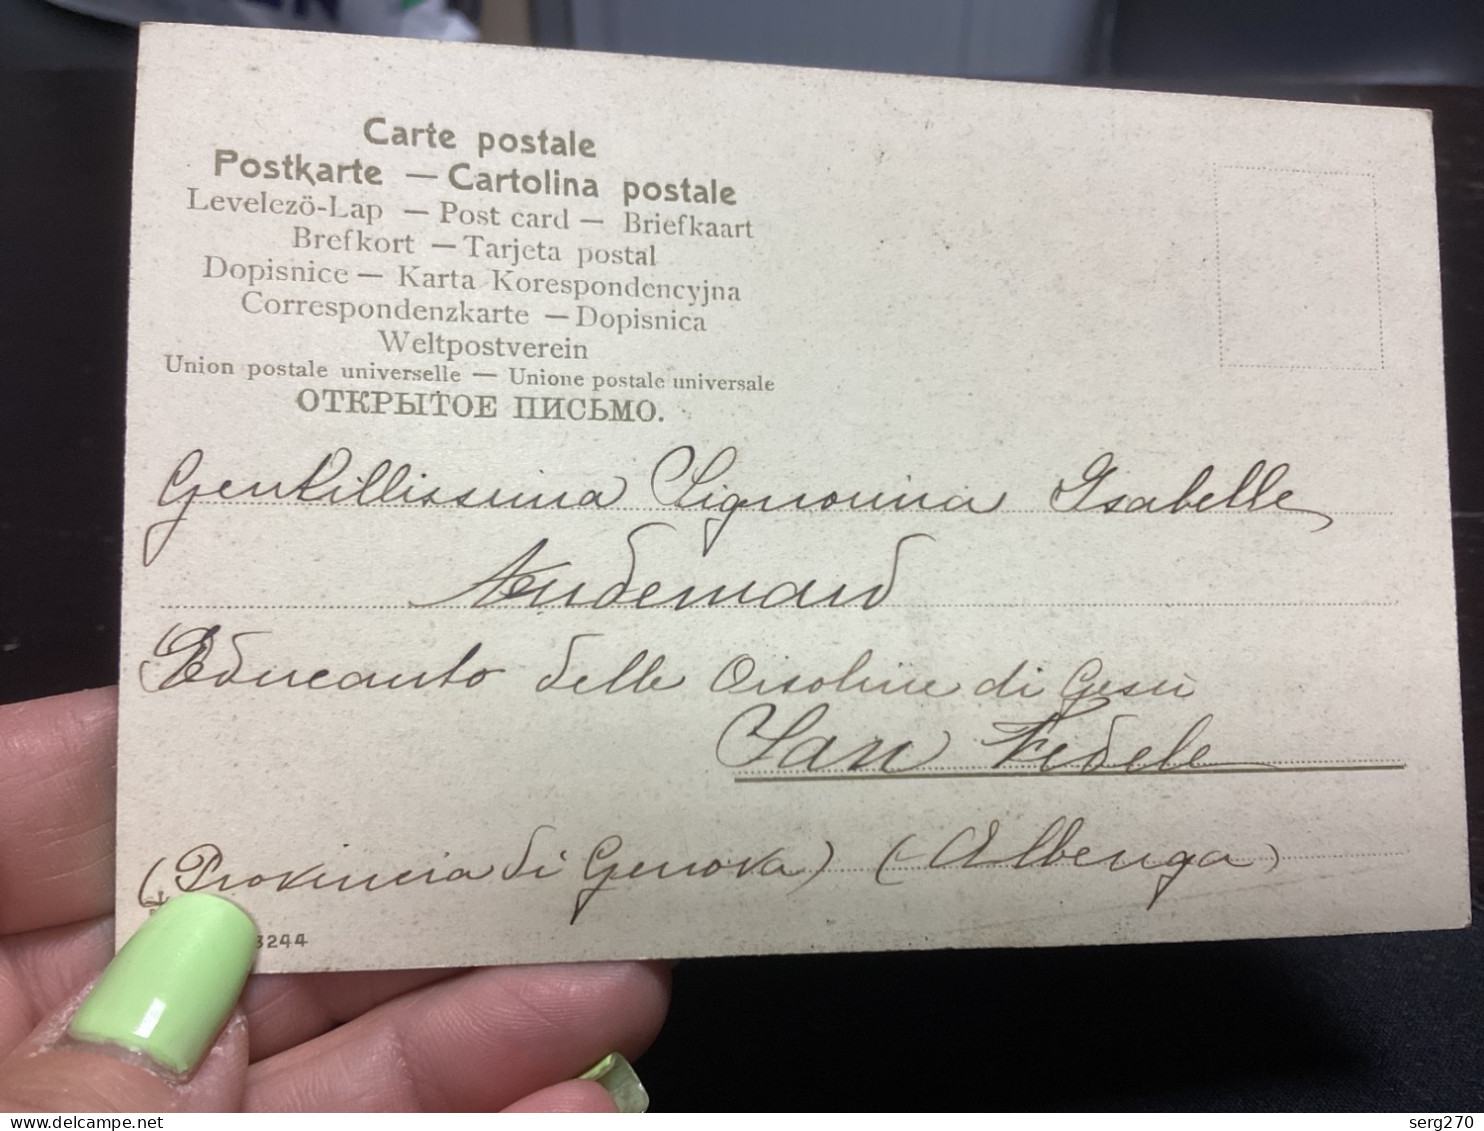 Carte postale
Postkarte — Cartolina postale
Levelezö-Lap — Post card — Briefkaart
Brefkort — Tarjeta postal
Dopisnice — Karta Korespondencyjna
Correspondenzkarte — Dopisnica
Weltpostverein
Union postale universelle — Unione postale universale
ОТКРЫТОЕ ПИСЬМО.
Gentillissima Signorina Isabelle
Audemard
Educanto delle Orsoline di Gesù
San Fedele
(Provincia di Genova) (Albenga)
3244
delcampe.net
serg270